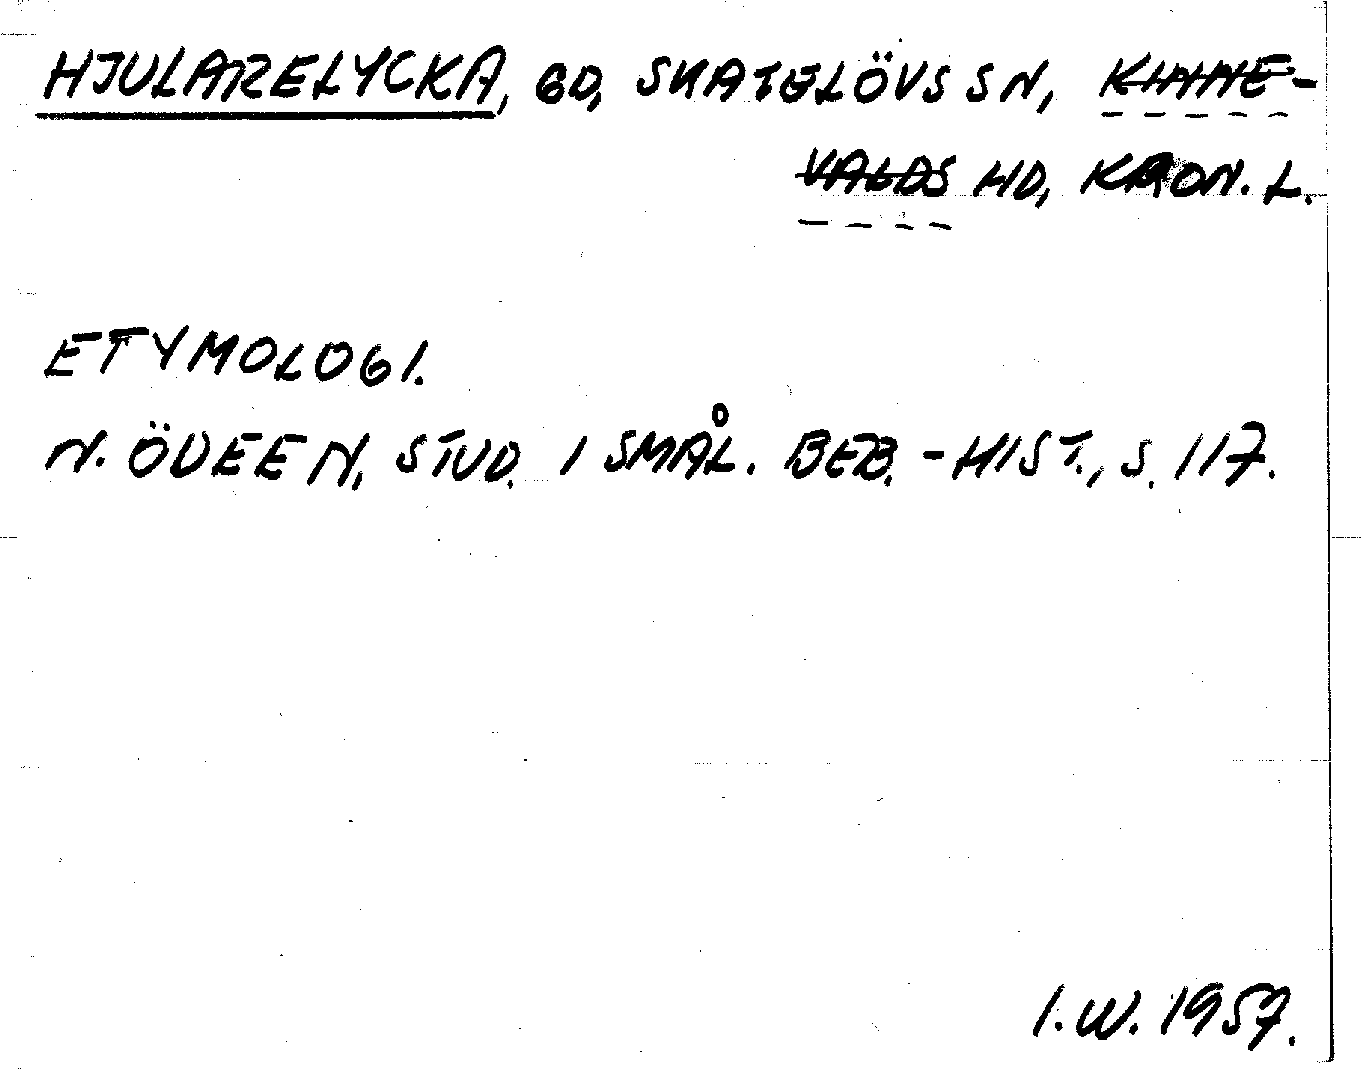 HJULARELYCKA, GD, SKATELÖVS SN, KINNE-
VALDS HD, KRON. L.
ETYMOLOGI.
N. ÖDEEN, STUD. I SMÅL. BEB.-HIST., S. 117.
I.W. 1957.